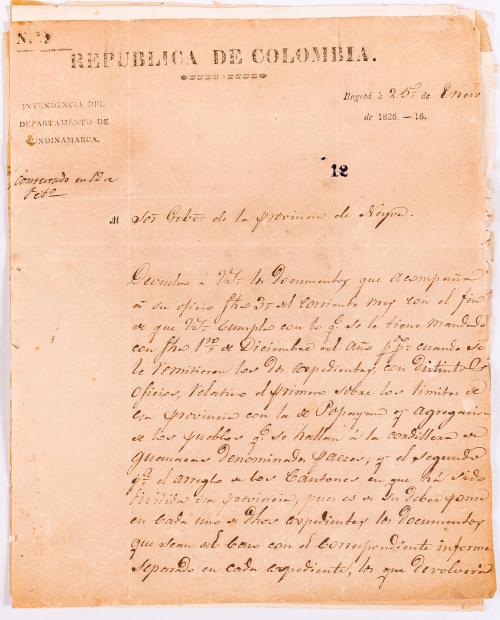 N.º
REPUBLICA DE COLOMBIA.
INTENDENCIA DEL
DEPARTAMENTO DE
CUNDINAMARCA.
Bogotá á 25 de Enero
de 1826.—16.
Contestado en 12 de
Feb.o
12
Al Sor Gobor de la provincia de Neyva.
Devuelvo á VS. los documentos que acompaña
á su oficio fha 3 del corriente mes con el fin
de que VS. cumpla con lo q.e se le tiene mandado
con fha 1.ro de Diciembre del año p.p. cuando se
le remitieron los dos expedientes, con distintos
oficios, relativo el primero sobre los limites de
esa provincia con la de Popayan y agregacion
de los pueblos q.e se hallan á la cordillera de
guanacas denominados paezes; y el segundo
p.a el arreglo de los Cantones en que há sido
dividida esa provincia, pues es de su deber poner
en cada uno de dhos expedientes los documentos
que sean del caso con el correspondiente informe
separado en cada expediente, los que devolverá